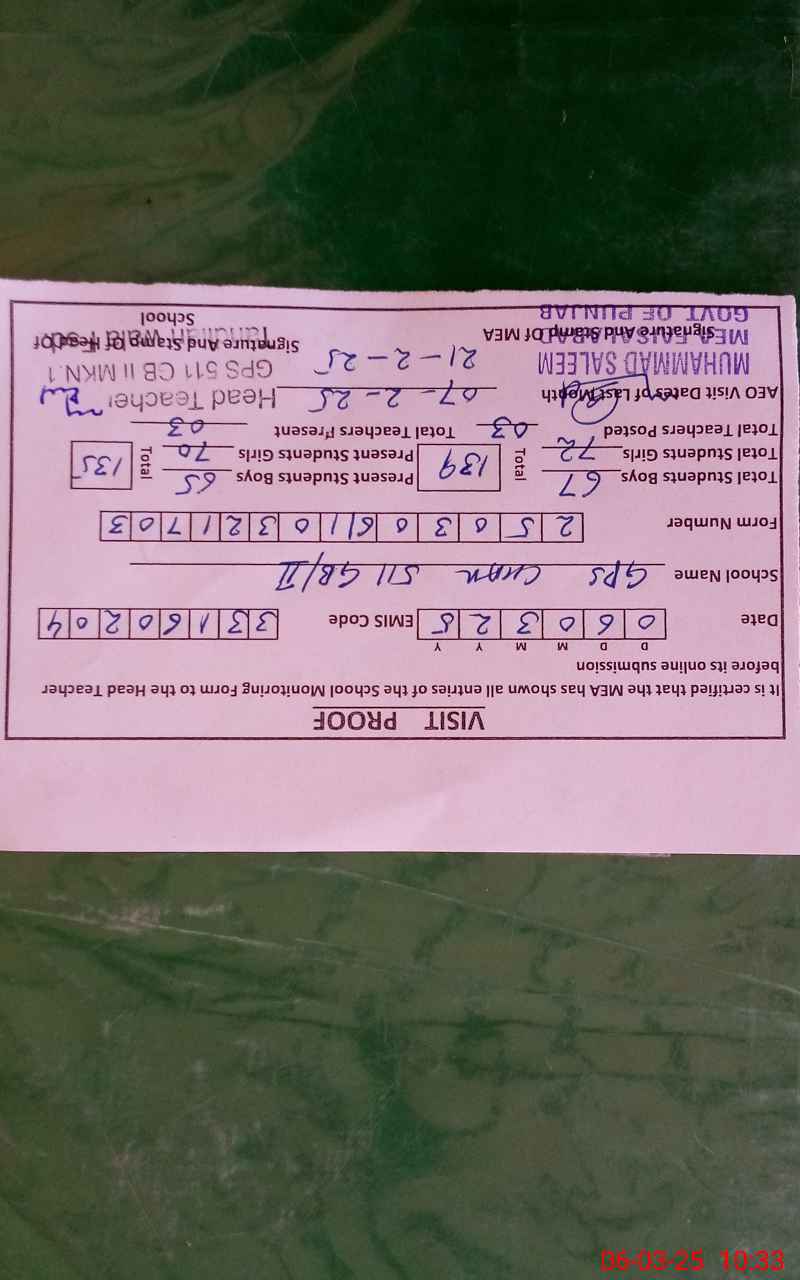 VISIT PROOF
It is certified that the MEA has shown all entries of the School Monitoring Form to the Head Teacher
before its online submission
D D M M Y Y
Date 0 6 0 3 2 5 EMIS Code 3 3 1 6 0 2 0 4
School Name GPS CHAK 511 GB/II
Form Number 2 5 0 3 0 6 1 0 3 2 1 7 0 3
Total Students Boys 67 Total 139 Present Students Boys 65 Total 135
Total Students Girls 72 Present Students Girls 70
Total Teachers Posted 03 Total Teachers Present 03
AEO Visit Dates of Last Month 07-2-25 Head Teacher
MUHAMMAD SALEEM 21-2-25 GPS 511 GB II MKN.1
MEA FAISALABAD
Signature And Stamp Of MEA Signature And Stamp Of Head Of
School
GOVT OF PUNJAB
06-03-25 10:33